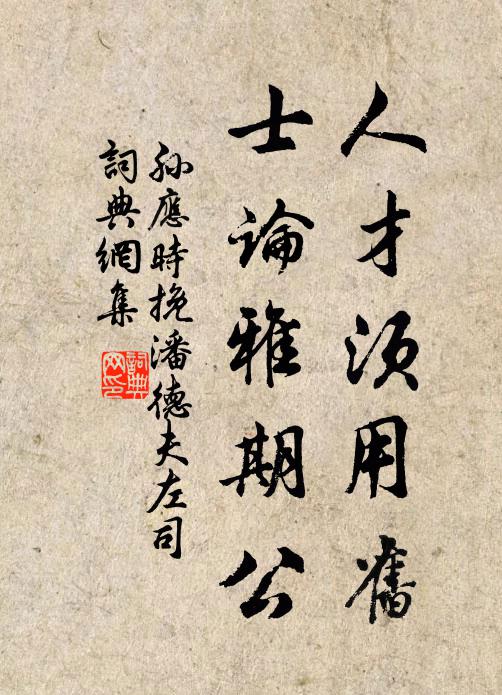 人才須用舊
士論雅期公
孫應時挽潘德夫左司
詞典網集
詞典網印